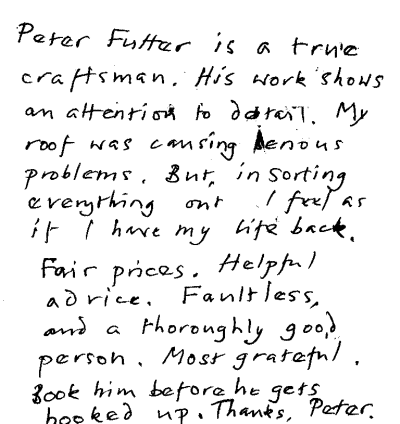 Peter Futter is a true
craftsman. His work shows
an attention to detail. My
roof was causing serious
problems. But, in sorting
everything out I feel as
if I have my life back.
Fair prices. Helpful
advice. Faultless,
and a thoroughly good
person. Most grateful.
Book him before he gets
booked up. Thanks, Peter.